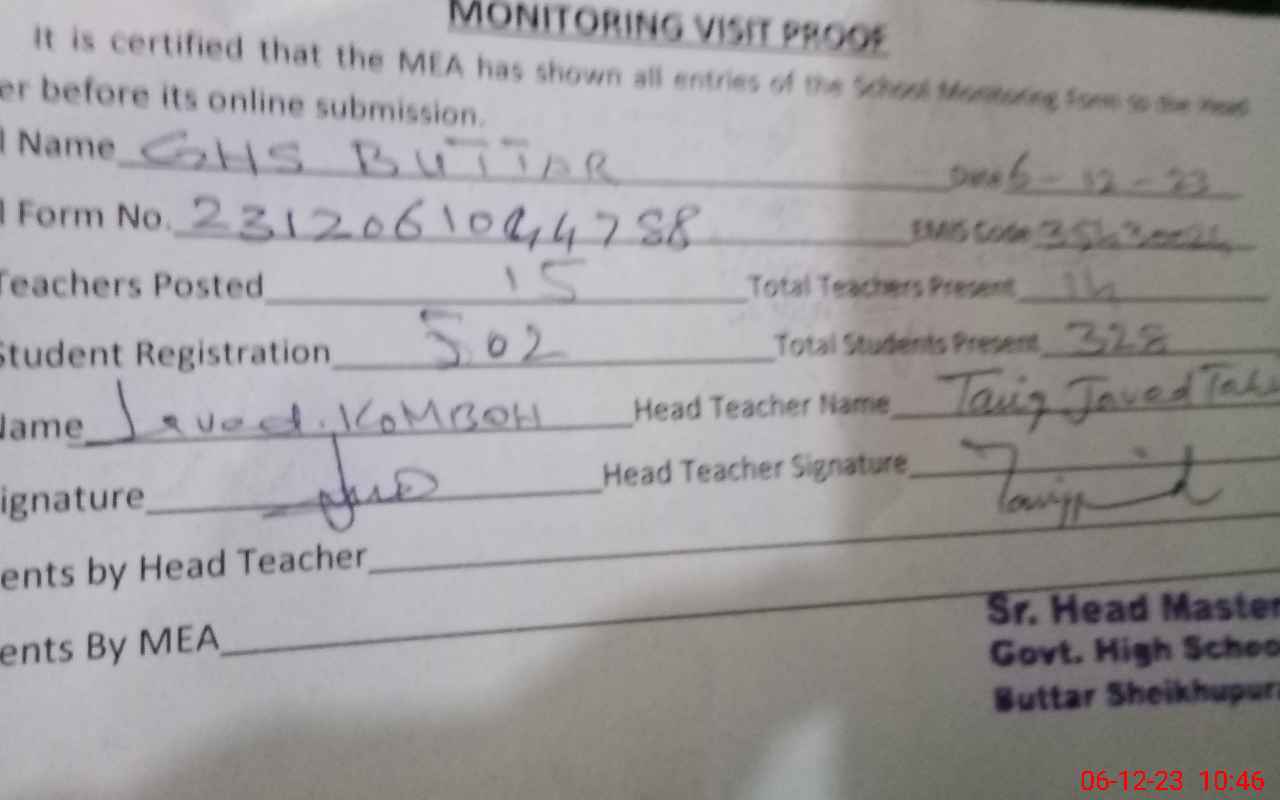 MONITORING VISIT PROOF
It is certified that the MEA has shown all entries of the School Monitoring Form to the Head
er before its online submission.
l Name GHS BUTTAR Date 6-12-23
l Form No. EMIS Code
Teachers Posted 15 Total Teachers Present 14
Student Registration 502 Total Students Present 328
Name Javed. KOMBOH Head Teacher Name Tariq Javed
ignature Head Teacher Signature
ents by Head Teacher
ents By MEA
Sr. Head Master
Govt. High Schoo
Buttar Sheikhupur
06-12-23 10:46